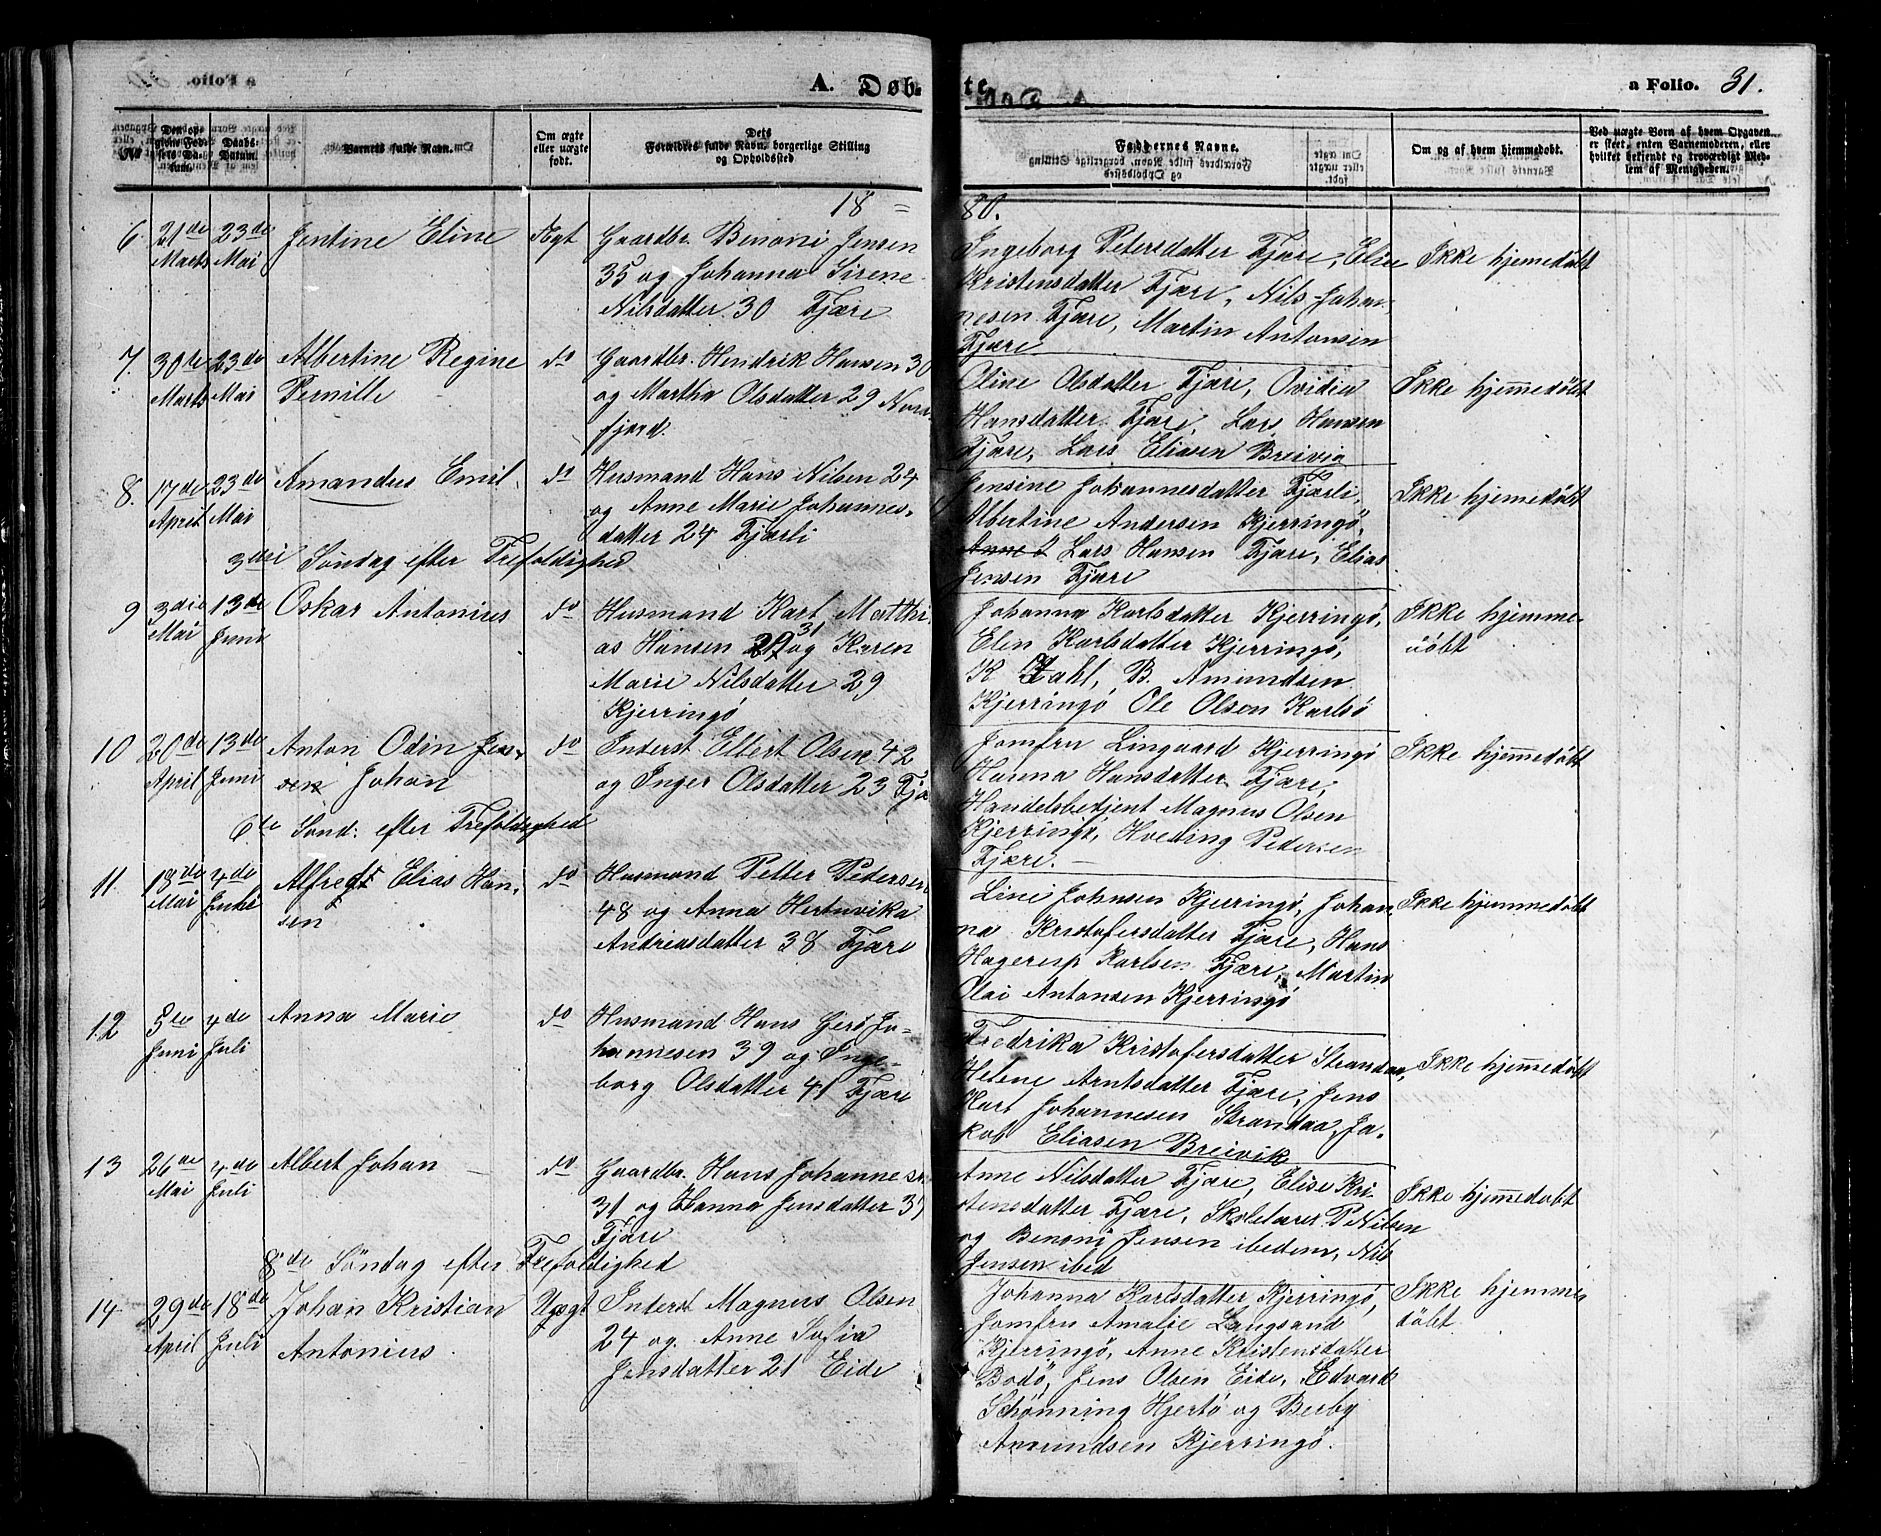 A. Døbte
a Folio. 31.
No
Den opgivne Fødsels Datum.
Daabs-Datum.
Barnets fulde Navn.
Om ægte eller uægte født.
Forældres fulde Navn, borgerlige Stilling og Opholdssted
Faddernes Navne.
Om og af hvem hjemmedøbt.
Ved uægte Børn af hvem Opgaven er skeet, enten Barnemoderen, eller hvilket bekjendt og troværdigt Medlem af Menigheden.
18 = 80.
6. 21de Marts 23de Mai Jentine Eline Ægt
Gaardbr. Benoni Jensen
35 og Johanna Sirene
Nilsdatter 30 Fjære
Ingeborg Petersdatter Fjære, Elise
Kristensdatter Fjære, Nils Johan-
nesen Fjære, Martin Antonsen
Fjære
Ikke hjemedøbt
7. 30te Marts 23de Mai Albertine Regine
Pernille
do
Gaardbr. Hendrik Hansen 30
og Martha Olsdatter 29 Nord
fjord.
Oline Olsdatter Fjære, Ovidia
Hansdatter Fjære, Lars Hansen
Fjære, Lars Eliasen Breivig
Ikke hjemmedøbt
8. 17de April 23de Mai Amandus Emil. do
Husmand Hans Nilsen 24
og Anne Marie Johannes-
datter 24 Fjærli
Jensine Johannesdatter Fjærli,
Albertine Andersen Kjerringø,
Anne Lars Hansen Fjære, Elias
Jensen Fjære
Ikke hjemedøbt
3die Søndag efter Trefoldighed
9 3die Mai 13de Juni Oskar Antonius do
Husmand Karl Matthi-
as Hansen 31 og Karen
Marie Nilsdatter 29
Kjerringø
Johanna Karlsdatter Kjerringø,
Elen Karlsdatter Kjerringø,
K Zahl, B. Amundsen
Kjerringø Ole Olsen Karlsø
Ikke hjemme-
døbt
10 20de April 13de Juni Anton Odin Jen-
sen Johan
do
Inderst Elbert Olsen 42
og Inger Olsdatter 23 Fjæ
Jomfru Lingaard Kjerringø
Hanna Hansdatter Fjære,
Handelsbetjent Magnus Olsen
Kjerringø, Hveding Pedersen
Fjære.
Ikke hjemmedøbt
6te Sønd: efter Trefoldighed
11. 18de Mai 4de Juli Alfred Elias Han-
sen
do
Husmand Petter Pedersen
48 og Anna Hertnvika
Andreasdatter 38 Fjære
Line Johnsen Kjerringø, Johan-
na Kristofersdatter Fjære, Hans
Hagerup Karlsen Fjære, Martin
Olai Antonsen Kjerringø
Ikke hjemmedøbt
12 5te Juni 4de Juli Anna Marie do
Husmand Hans Gerø Jo-
hannesen 39 og Inge-
borg Olsdatter 41 Fjære
Fredrika Kristofersdatter Strandaa,
Helene Arntsdatter Fjære, Jens
Hart Johannesen Strandaa, Ja-
kob Eliasen Breivik
Ikke hjemmedøbt
13 26de Mai 4de Juli Albert Johan do
Gaardbr. Hans Johannesen
31 og Hanna Jensdatter 31
Fjære
Anne Nilsdatter Fjære, Elise Kri-
stensdatter Fjære, Skolelærer P Nilsen
og Benoni Jensen ibedem, Nils
Jensen ibed
Ikke hjemmedøbt
8de Søndag efter Trefoldighed
14 29de April 18de Juli Johan Kristian
Antonius.
Uægt
Inderst Magnus Olsen
24 og Anne Sofia
Jensdatter 21 Eide
Johanna Karlsdatter Kjerringø,
Jomfru Amalie Langsand
Kjerringø, Anne Kristensdatter
Bodø, Jens Olsen Eide, Edvard
Schønning Hjertø og Berby
Amundsen Kjerringø.
Ikke hjemme-
døbt